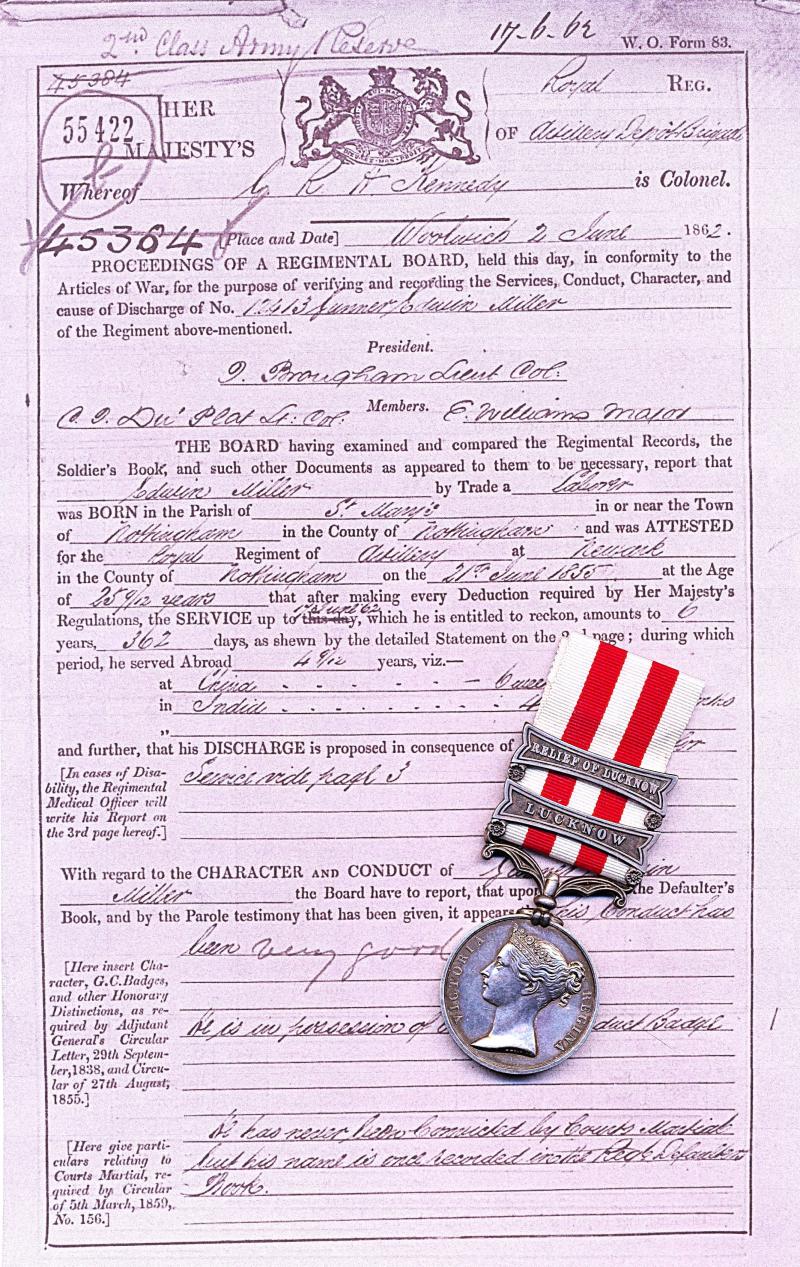 2nd Class Army Reserve
17-6-62
W. O. Form 83.
45384
55422
HER
MAJESTY'S
Royal REG.
OF Artillery Depôt Brigade
Whereof C R H Kennedy is Colonel.
45384 [Place and Date] Woolwich 2 June 1862.
PROCEEDINGS OF A REGIMENTAL BOARD, held this day, in conformity to the
Articles of War, for the purpose of verifying and recording the Services, Conduct, Character, and
cause of Discharge of No. 12413 Gunner Edwin Miller
of the Regiment above-mentioned.
President.
Brougham Lieut Col.
C. I. Du Plat Lt. Col. Members. E. Williams Major
THE BOARD having examined and compared the Regimental Records, the
Soldier's Book, and such other Documents as appeared to them to be necessary, report that
Edwin Miller by Trade a Laborer
was BORN in the Parish of St Mary's in or near the Town
of Nottingham in the County of Nottingham and was ATTESTED
for the Royal Regiment of Artillery at Newark
in the County of Nottingham on the 21st June 1855 at the Age
of 25 9/12 years that after making every Deduction required by Her Majesty's
Regulations, the SERVICE up to this day, 17 June 62 which he is entitled to reckon, amounts to 6
years, 362 days, as shewn by the detailed Statement on the page; during which
period, he served Abroad 4 9/12 years, viz.—
at China
in India 4
„
and further, that his DISCHARGE is proposed in consequence of
[In cases of Disa-
bility, the Regimental
Medical Officer will
write his Report on
the 3rd page hereof.]
Service vide page 3
RELIEF OF LUCKNOW
LUCKNOW
With regard to the CHARACTER AND CONDUCT of
Miller the Board have to report, that upon the Defaulter's
Book, and by the Parole testimony that has been given, it appears his Conduct has
been very good
VICTORIA REGINA
[Here insert Cha-
racter, G.C.Badges,
and other Honorary
Distinctions, as re-
quired by Adjutant
General's Circular
Letter, 29th Septem-
ber, 1838, and Circu-
lar of 27th August,
1855.]
He is in possession of Badge
[Here give parti-
culars relating to
Courts Martial, re-
quired by Circular
of 5th March, 1859,
No. 156.]
He has never been Convicted by Courts Martial
but his name is once recorded in the Regtl Defaulters
Book.